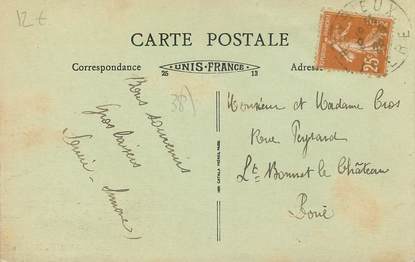 12 €
CARTE POSTALE
Correspondance
UNIS-FRANCE
25 13
Adresse
25c
38)
Bons souvenirs
Gros baisers
Simone
Monsieur et Madame Cros
Rue Peyrard
St Bonnet le Château
Loire